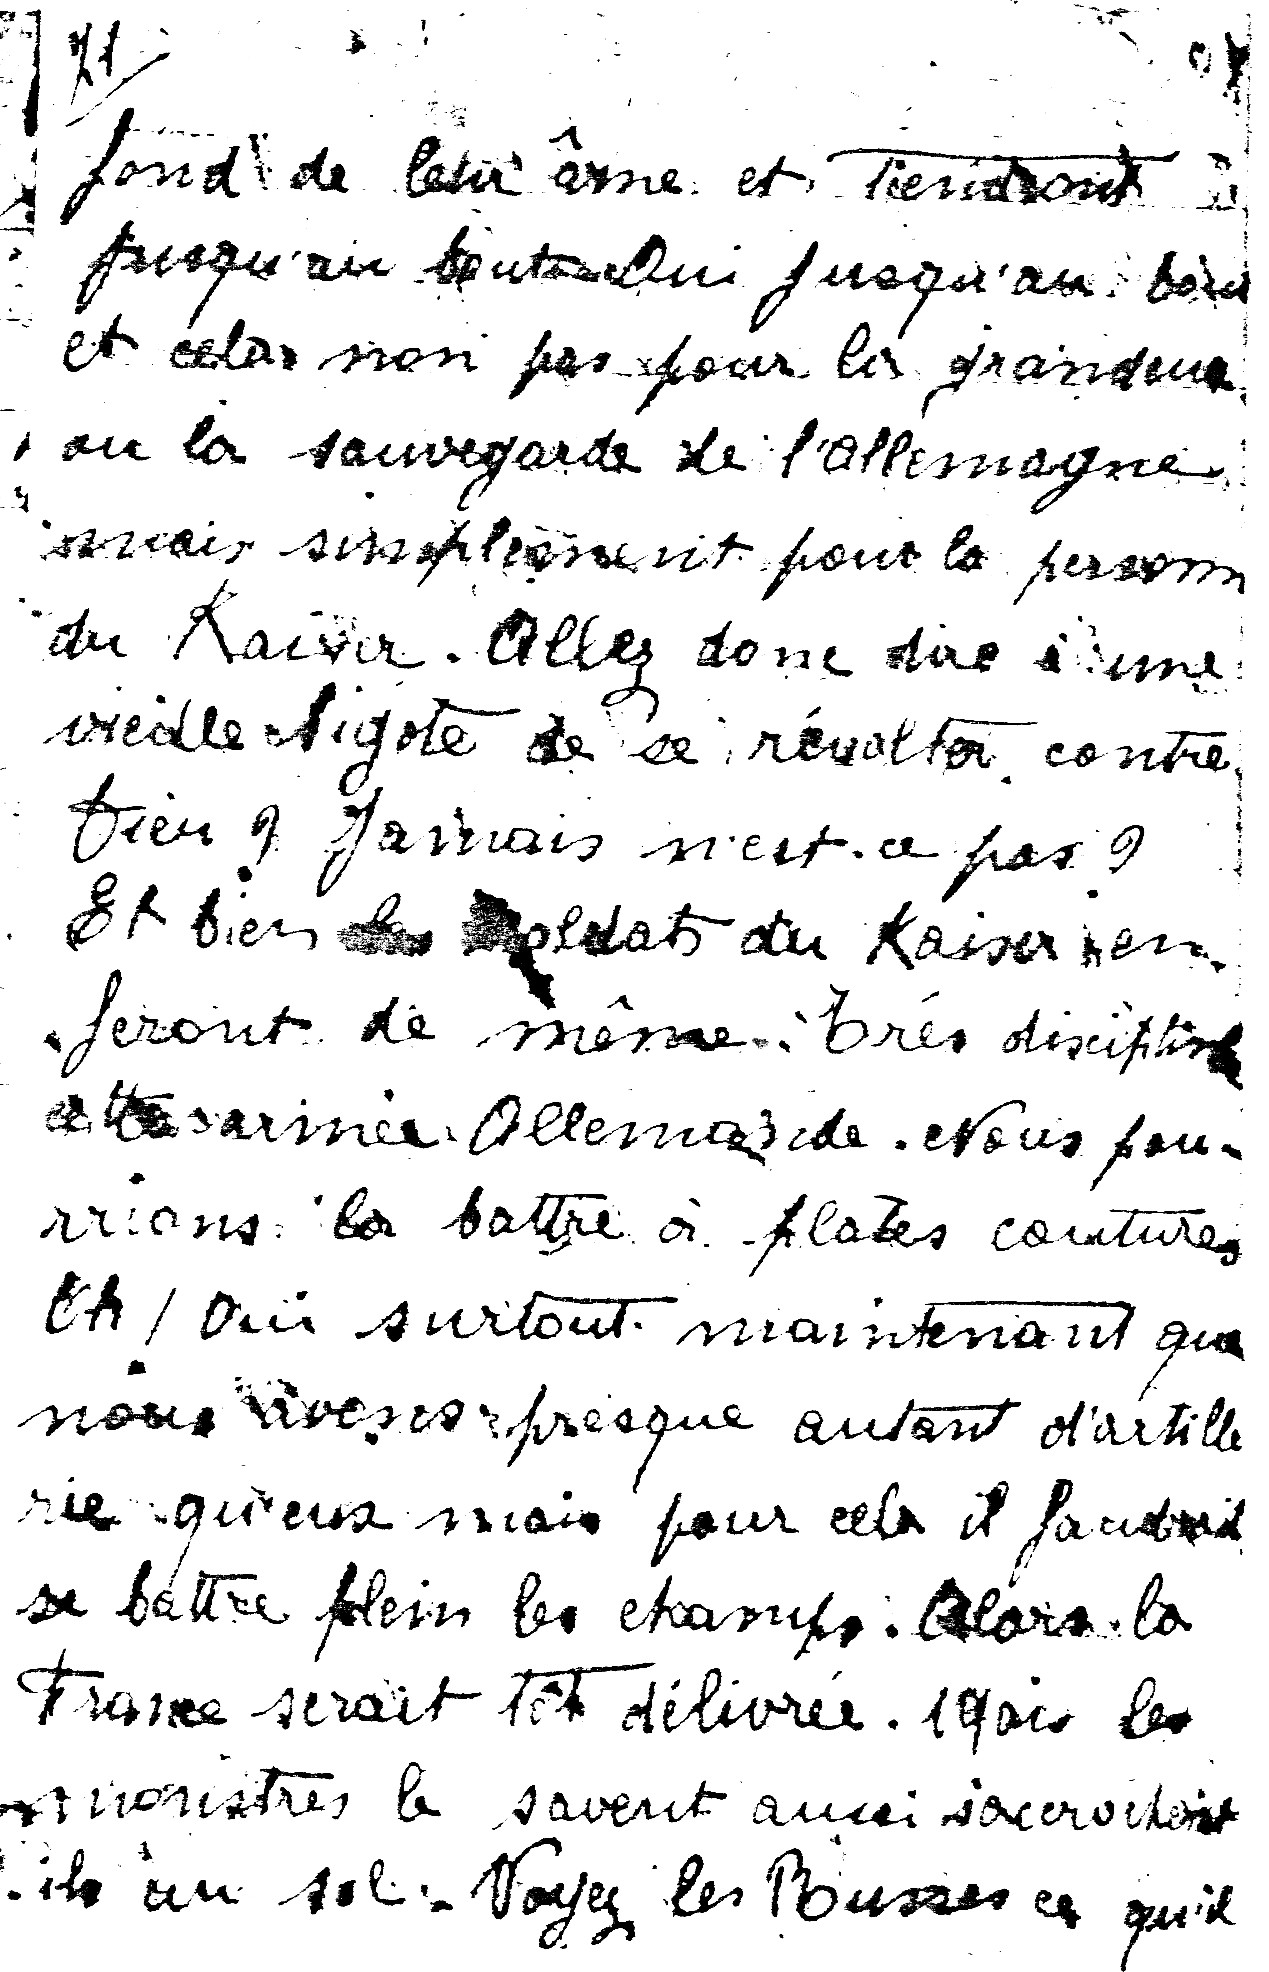 71
fond de leur âme et tiendront
jusqu'au bout. Oui jusqu'au bout
et cela non pas pour la grandeur
ou la sauvegarde de l'Allemagne
mais simplement pour la personn
du Kaiser. Allez donc dire à une
vieille bigote de se révolter contre
Dieu ? Jamais n'est-ce pas ?
Et bien les soldats du Kaiser en
feront de même. Très discipliné
cette armée Allemande. Nous pou-
rrions la battre à plates coutures
Oh ! Oui surtout maintenant que
nous avons presque autant d'artille
rie qu'eux mais pour cela il faudrait
se battre plein les champs. Alors la
France serait tôt délivrée. Mais les
monstres le savent aussi s'accrochent
ils au sol. Voyez les Russes ce qu'il